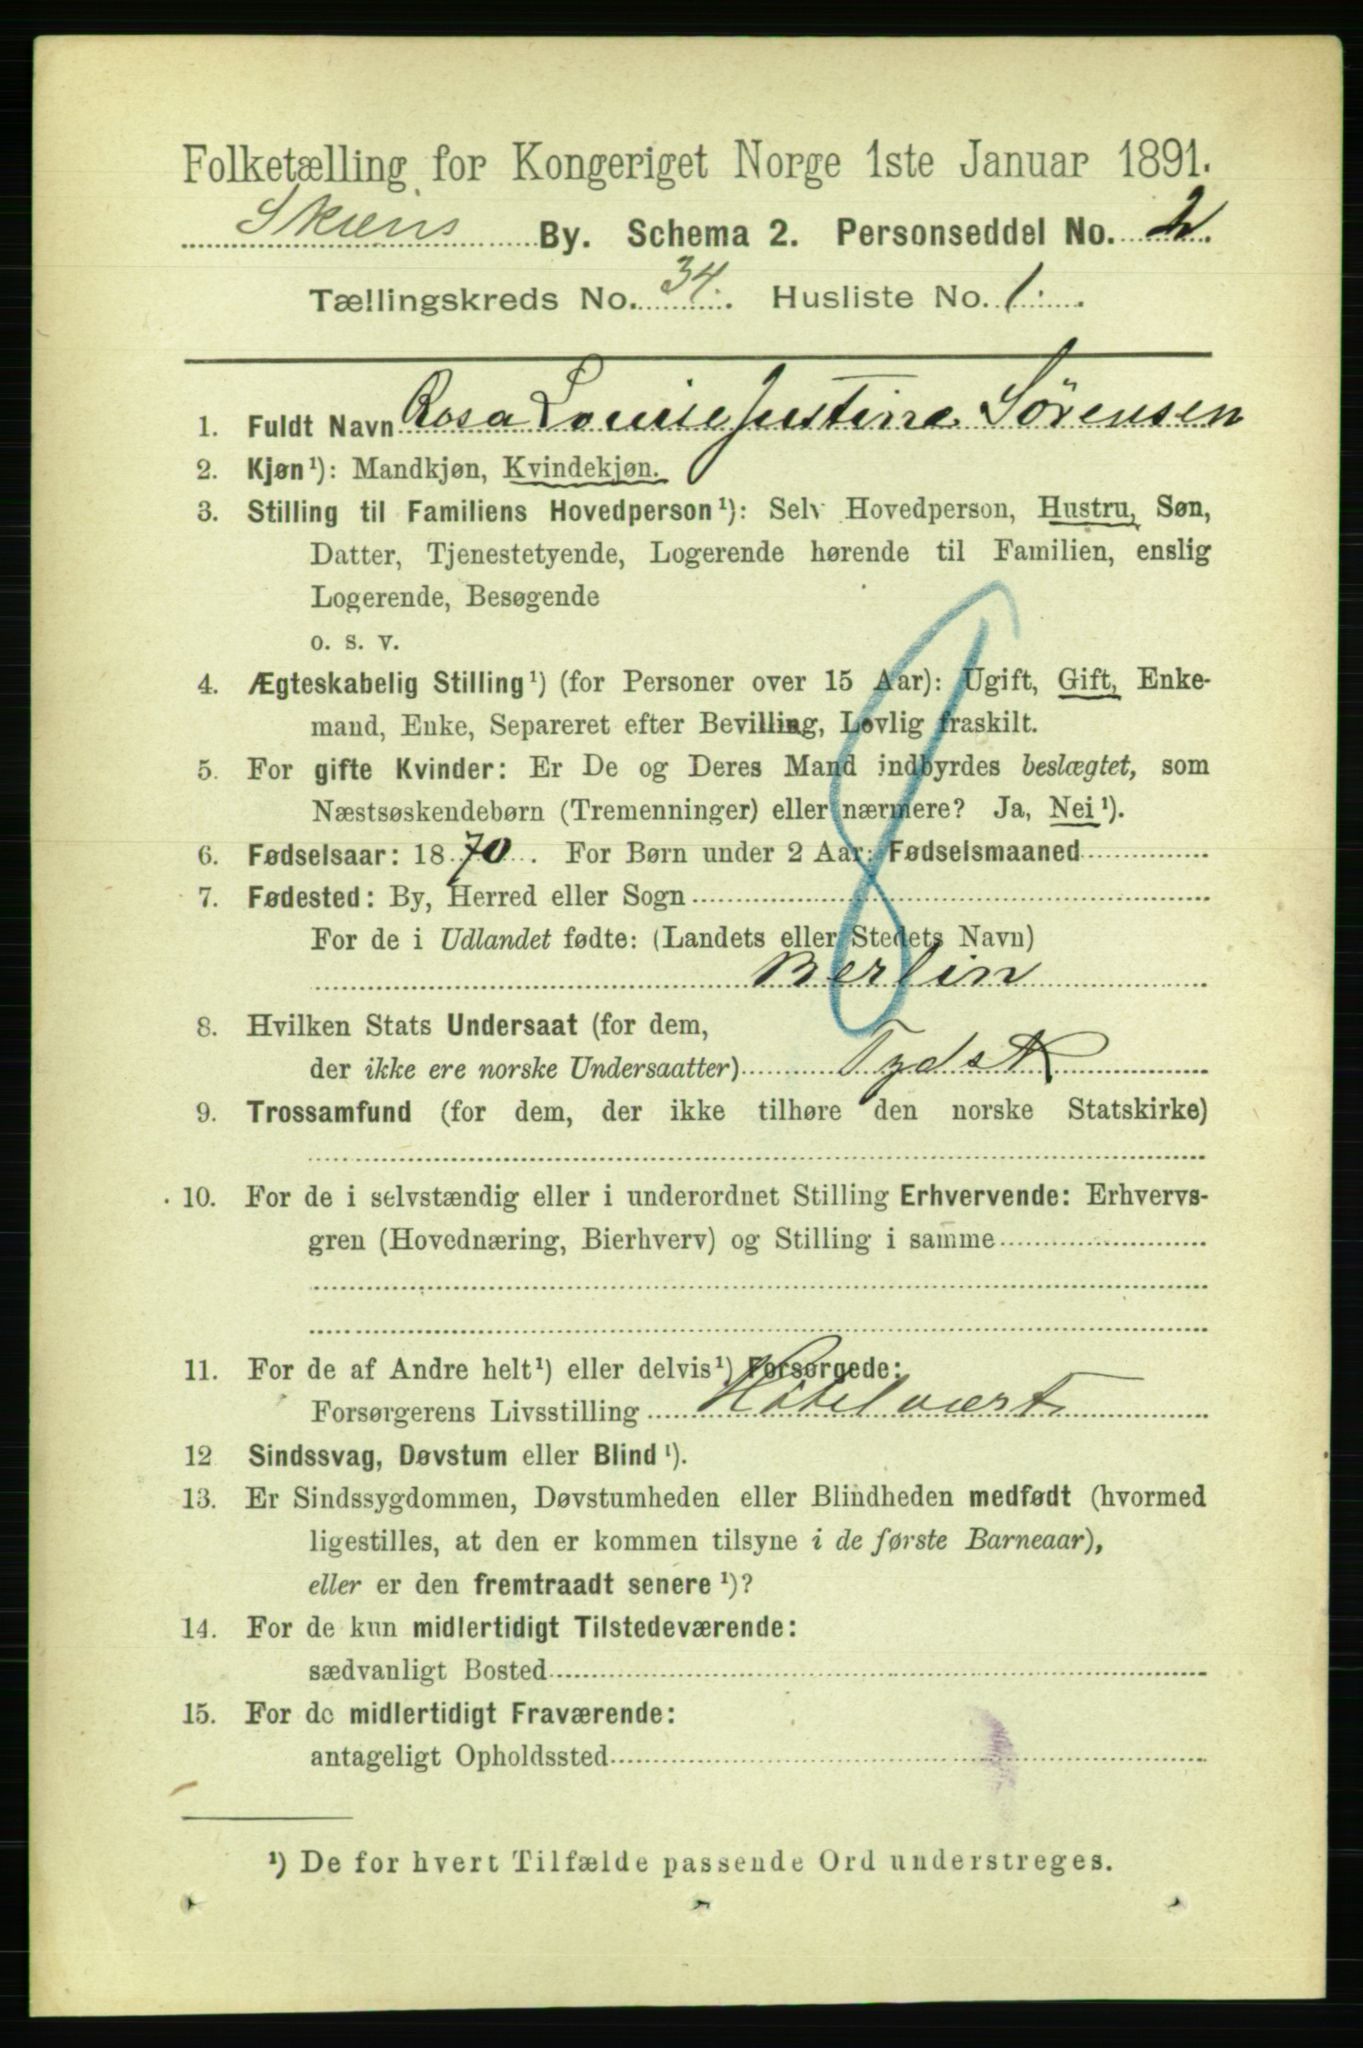 Folketælling for Kongeriget Norge 1ste Januar 1891.
Skiens By. Schema 2. Personseddel No. 2.
Tællingskreds No. 34. Husliste No. 1.
1. Fuldt Navn Rosa Louise Justine Sörensen
2. Kjøn¹): Mandkjøn, Kvindekjøn.
3. Stilling til Familiens Hovedperson¹): Selv Hovedperson, Hustru, Søn,
Datter, Tjenestetyende, Logerende hørende til Familien, enslig
Logerende, Besøgende
o. s. v.
4. Ægteskabelig Stilling¹) (for Personer over 15 Aar): Ugift, Gift, Enke-
mand, Enke, Separeret efter Bevilling, Lovlig fraskilt.
5. For gifte Kvinder: Er De og Deres Mand indbyrdes beslægtet, som
Næstsøskendebørn (Tremenninger) eller nærmere? Ja, Nei¹).
6. Fødselsaar: 1870. For Børn under 2 Aar: Fødselsmaaned
7. Fødested: By, Herred eller Sogn
For de i Udlandet fødte: (Landets eller Stedets Navn)
Berlin
8. Hvilken Stats Undersaat (for dem,
der ikke ere norske Undersaatter) Tydsk
9. Trossamfund (for dem, der ikke tilhøre den norske Statskirke)
10. For de i selvstændig eller i underordnet Stilling Erhvervende: Erhvervs-
gren (Hovednæring, Bierhverv) og Stilling i samme
11. For de af Andre helt¹) eller delvis¹) Forsørgede:
Forsørgerens Livsstilling Hotelvært
12 Sindssvag, Døvstum eller Blind¹).
13. Er Sindssygdommen, Døvstumheden eller Blindheden medfødt (hvormed
ligestilles, at den er kommen tilsyne i de første Barneaar),
eller er den fremtraadt senere¹)?
14. For de kun midlertidigt Tilstedeværende:
sædvanligt Bosted
15. For de midlertidigt Fraværende:
antageligt Opholdssted
¹) De for hvert Tilfælde passende Ord understreges.